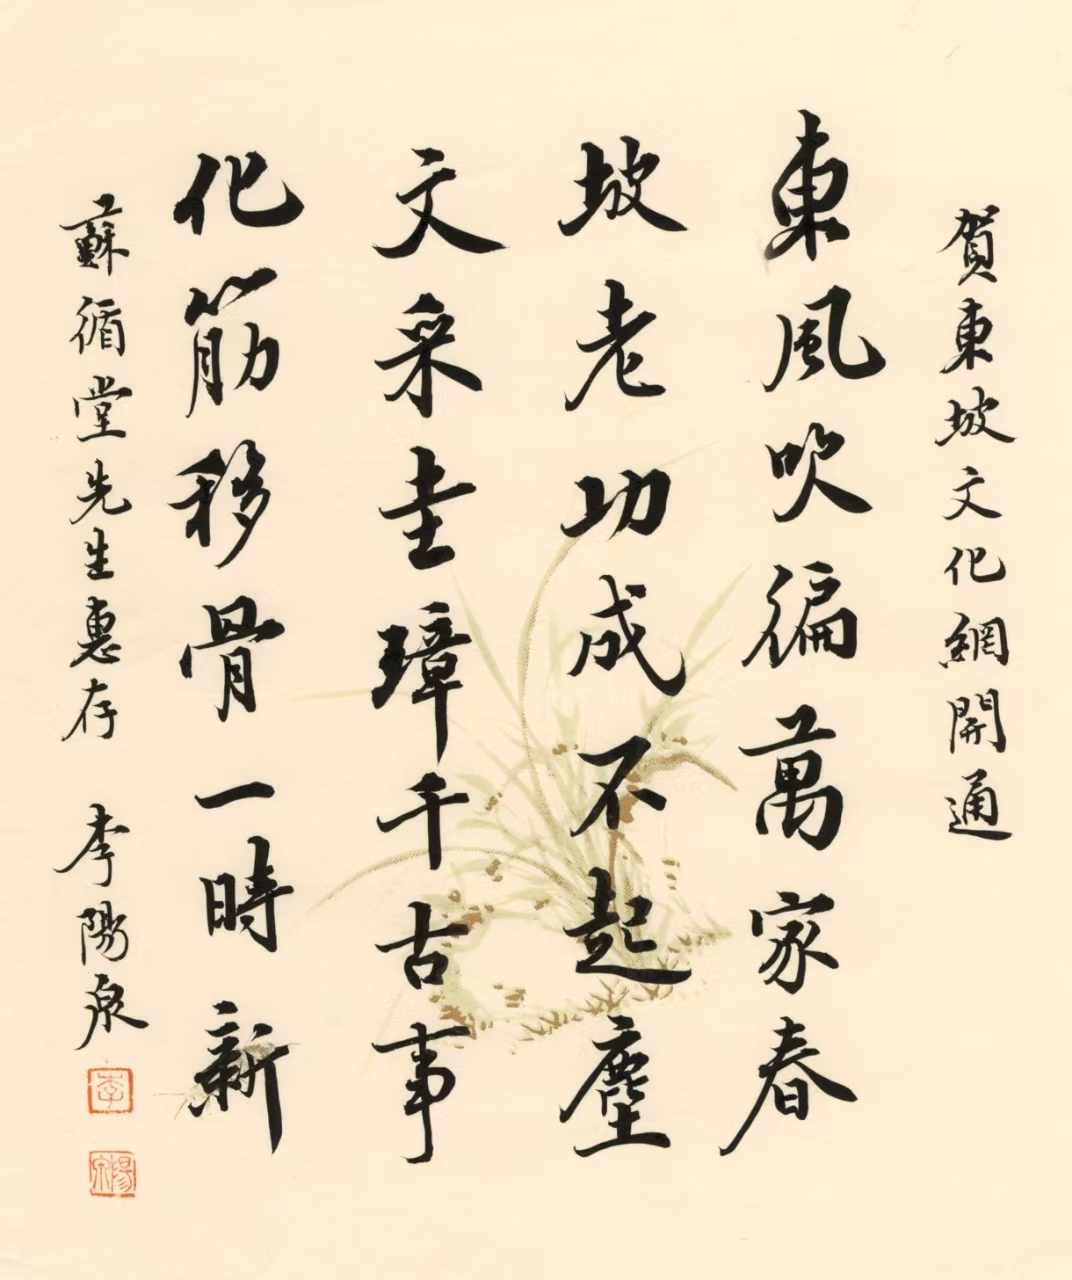 賀東坡文化網開通
東風吹徧萬家春
坡老功成不起塵
文采圭璋千古事
化筋移骨一時新
蘇循堂先生惠存
李陽泉
李
陽泉